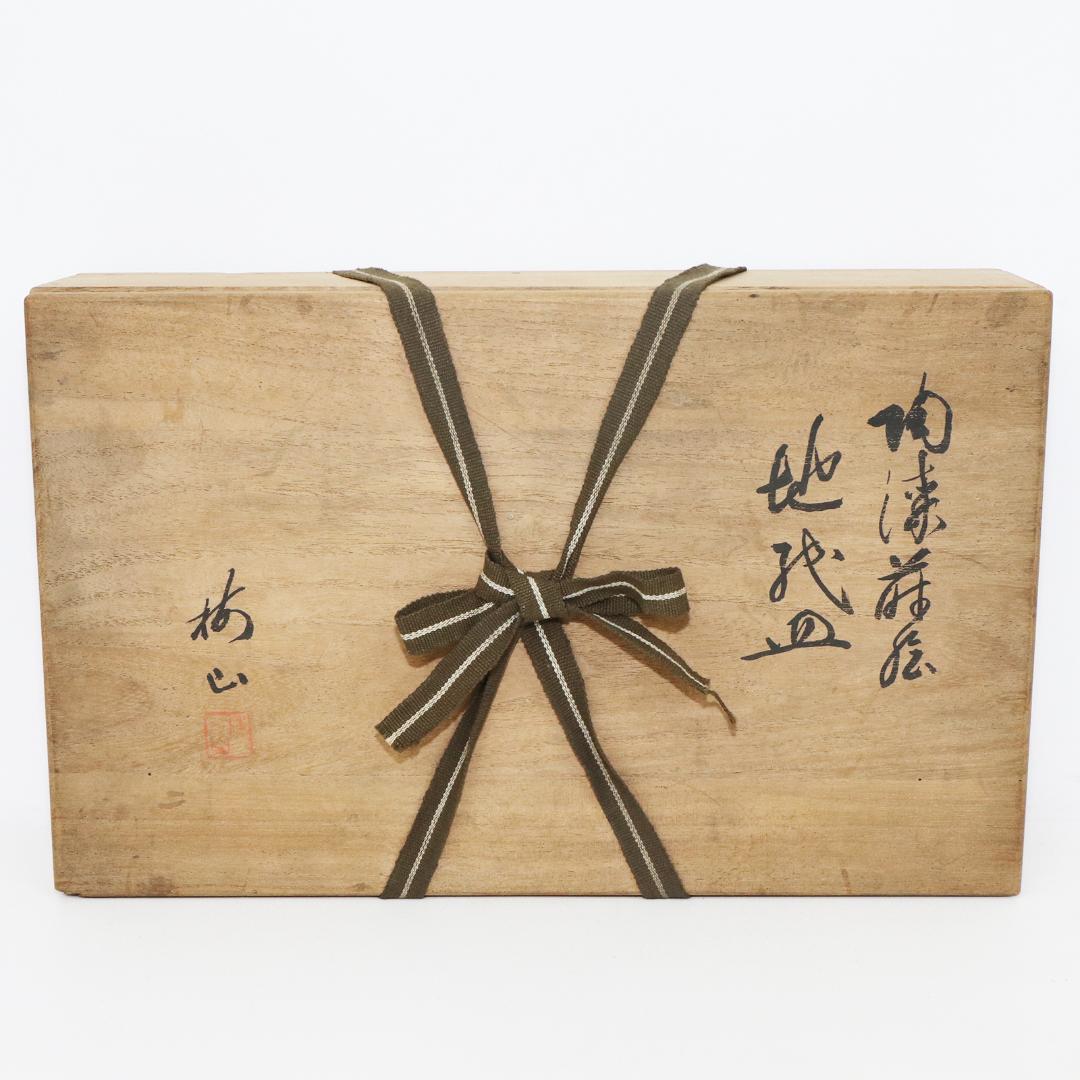 陶漆蒔絵
地紙皿
梅山